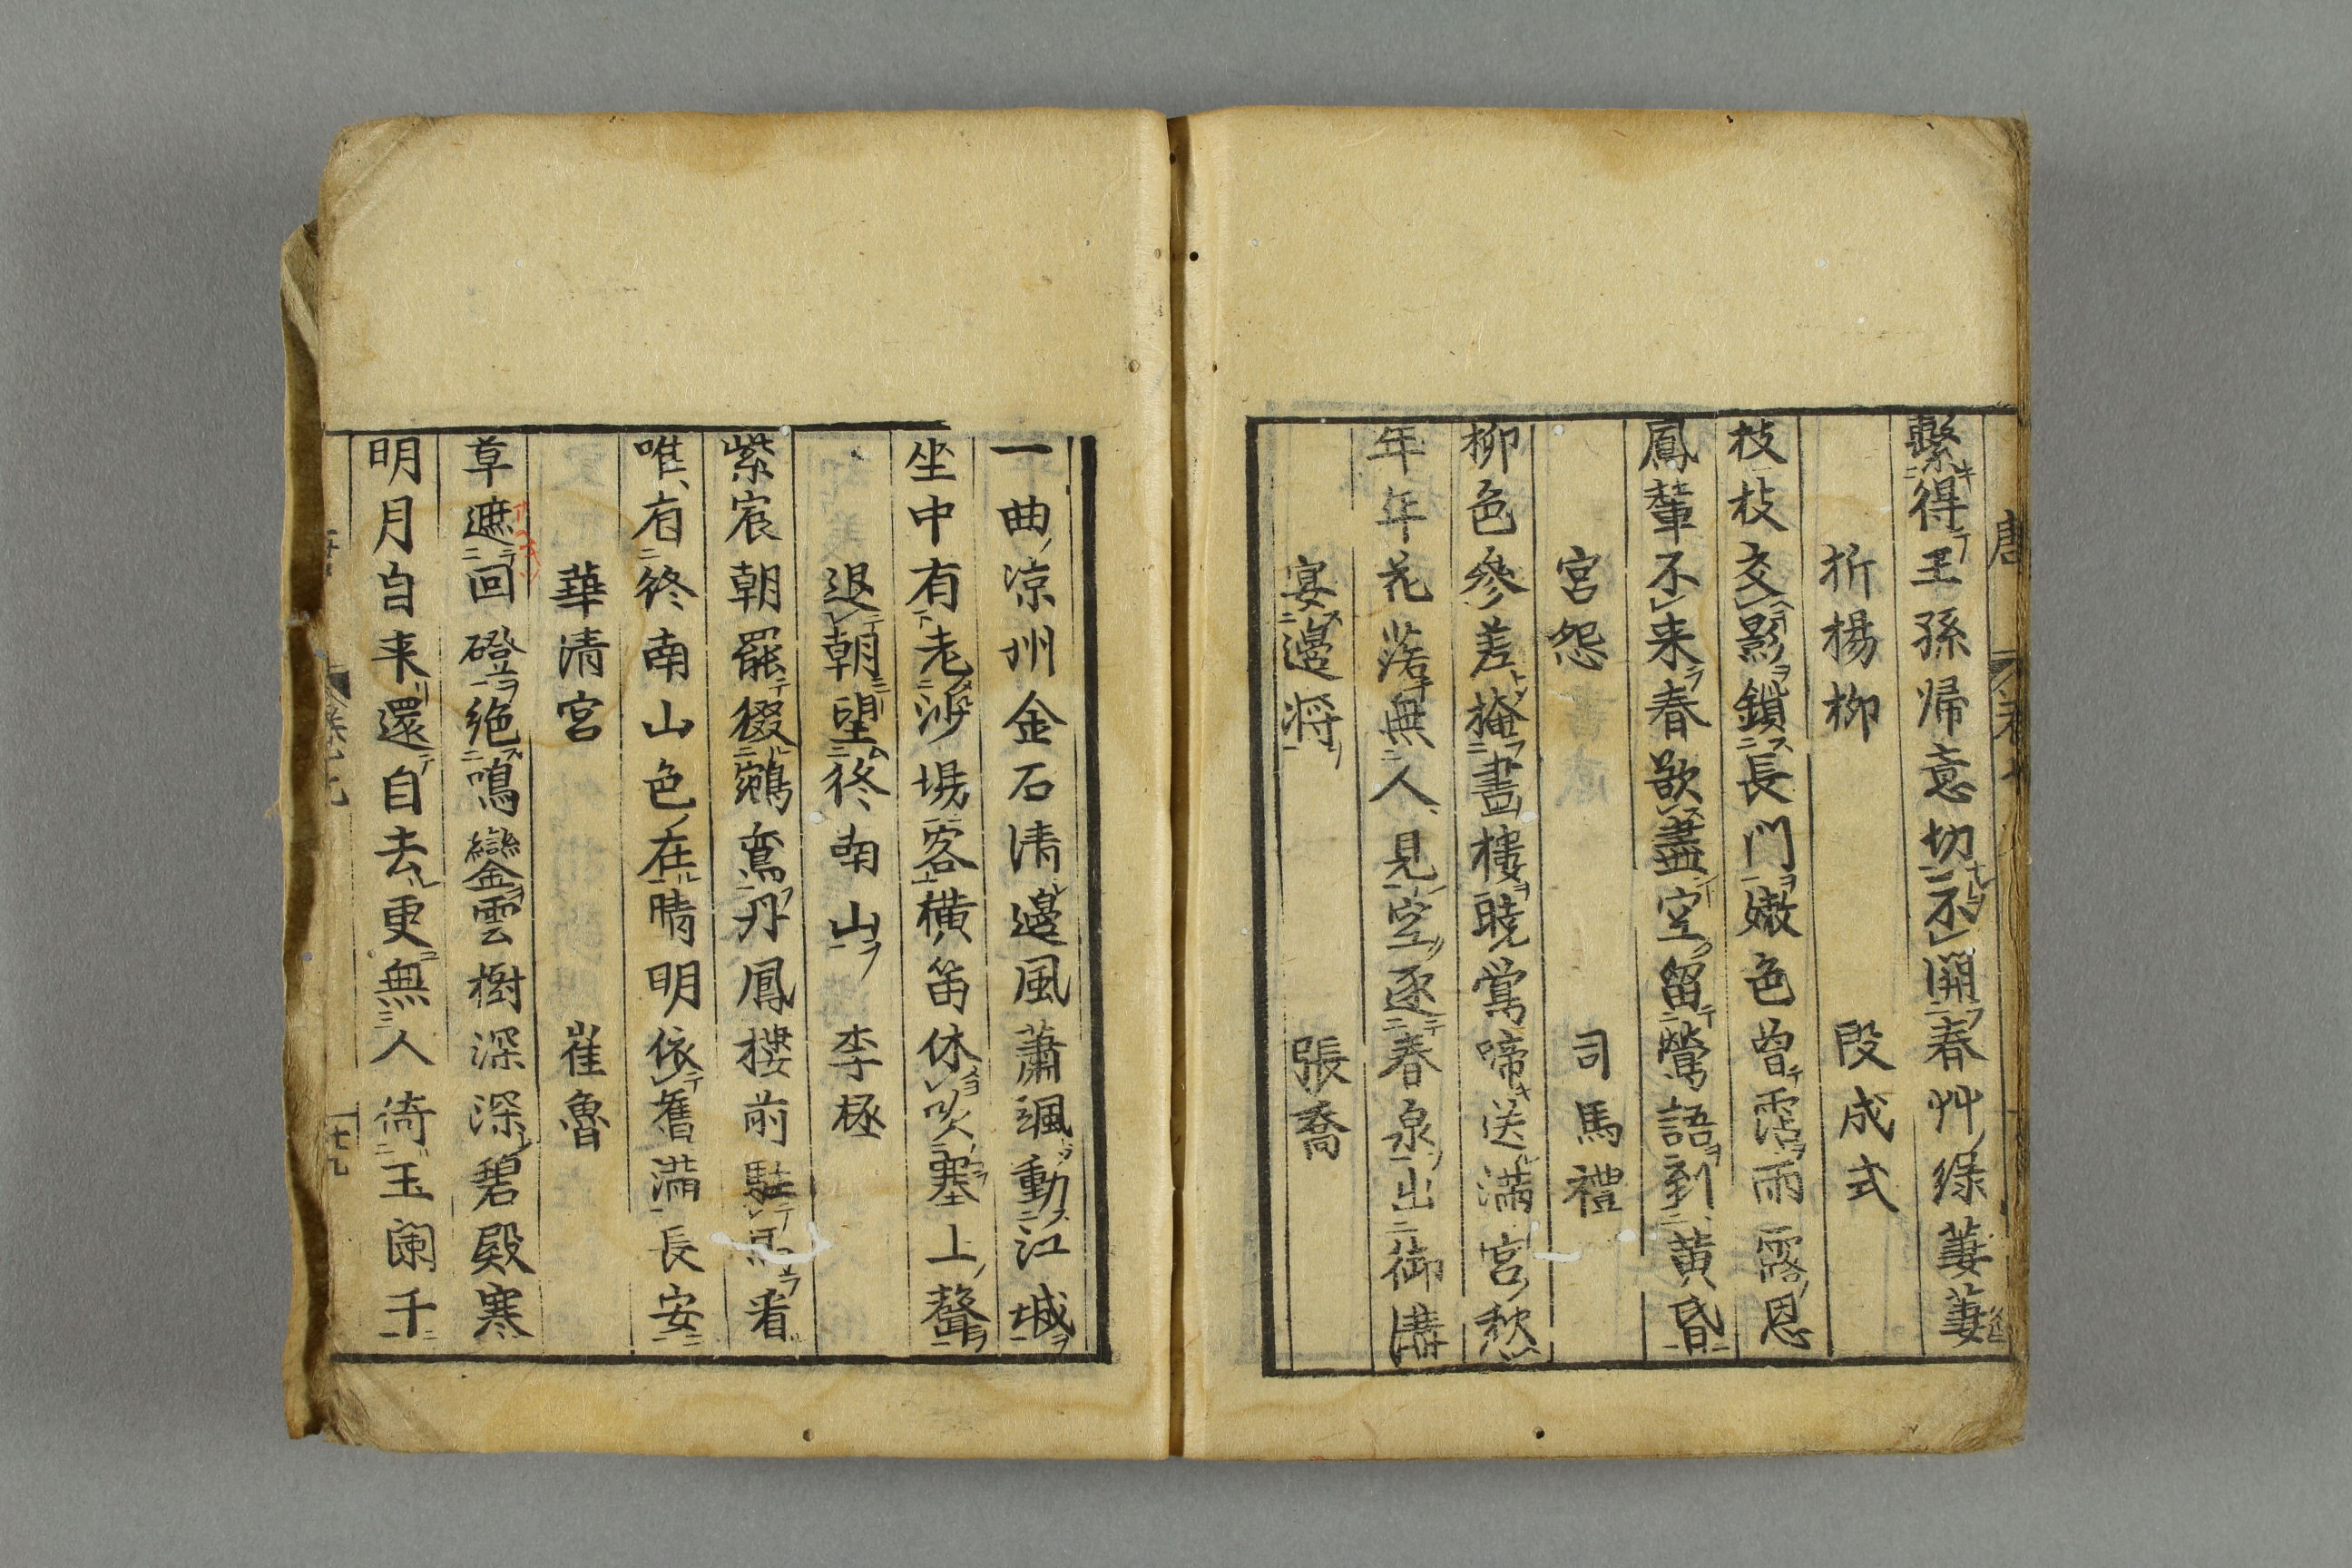 繫得王孫帰意切不開春艸緑萋萋
折楊柳 段成式
枝枝交影鎖長門嫩色曾霑雨露恩
鳳輦不来春欲盡空留鶯語到黄昏
宮怨 司馬禮
柳色參差掩畫樓暁鶯啼送満宮愁
年年花落無人見空逐春泉出御溝
宴邉将 張喬
一曲凉州金石清邉風蕭颯動江城
坐中有老沙場客横笛休吹塞上聲
退朝望終南山 李極
紫宸朝罷綴鵷鸞丹鳳樓前駐馬看
唯有終南山色在晴明依舊満長安
華清宮 崔魯
草遮回磴絶鳴鑾雲樹深深碧殿寒
明月自来還自去更無人倚玉闌干